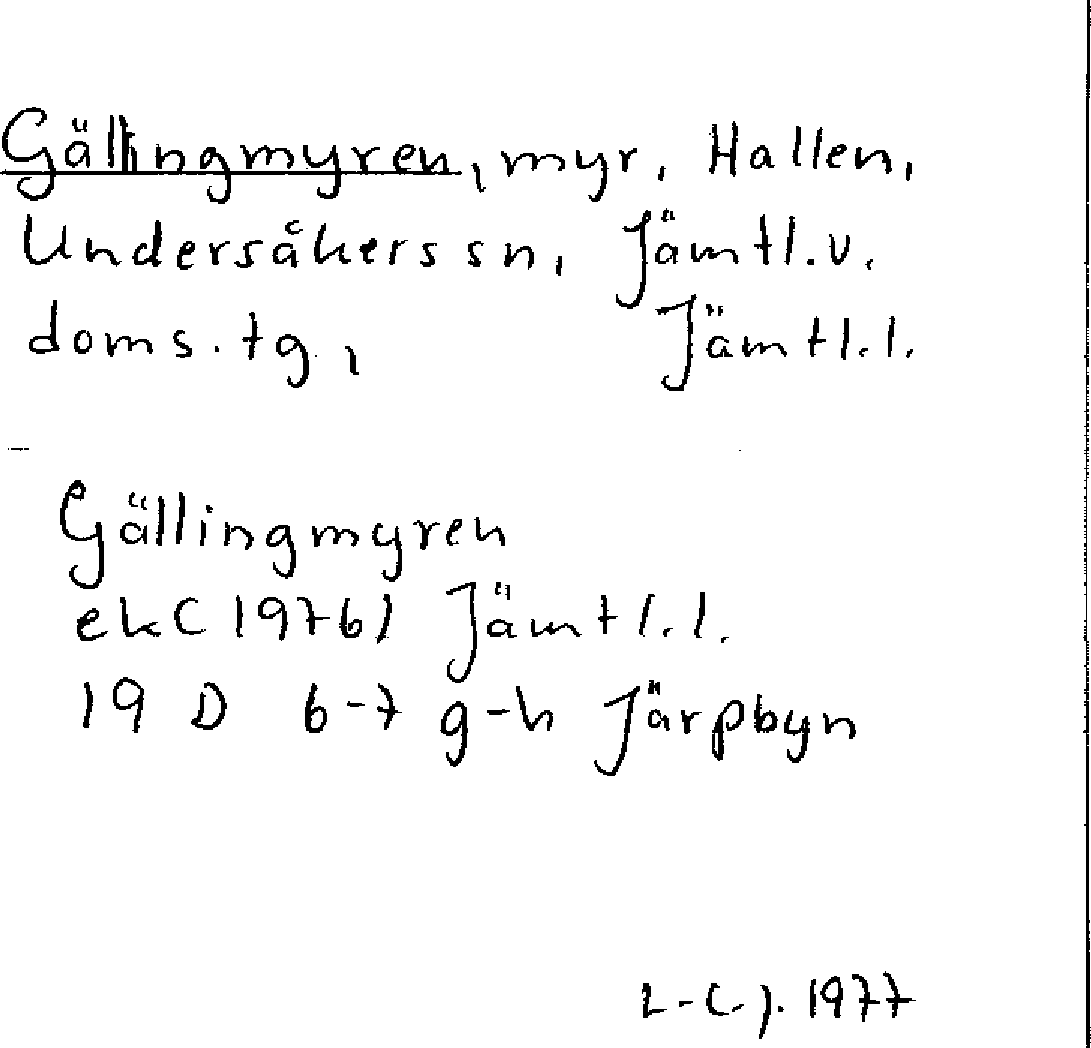 Gällingmyren, myr, Hallen,
Undersåkers sn, Jämtl.v.
doms.tg, Jämtl.l.
Gällingmyren
ek (1976) Jämtl.l.
19 D 6-7 g-h Järpbyn
L-C.J. 1977